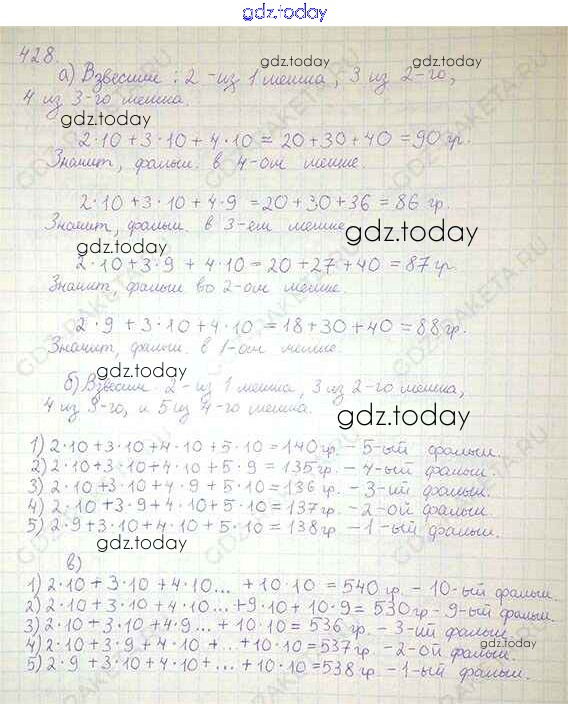 gdz.today
428.
а) Взвесим: 2 -из 1 мешка, 3 из 2-го,
4 из 3-го мешка.
gdz.today
gdz.today
2·10 + 3·10 + 4·10 = 20 + 30 + 40 = 90 гр.
Значит, фальш. в 4-ом мешке.
2·10 + 3·10 + 4·9 = 20 + 30 + 36 = 86 гр.
Значит, фальш. в 3-ем мешке
gdz.today
gdz.today
2·10 + 3·9 + 4·10 = 20 + 27 + 40 = 87 гр.
Значит, фальш во 2-ом мешке.
2·9 + 3·10 + 4·10 = 18 + 30 + 40 = 88 гр.
Значит, фальш. в 1-ом мешке.
gdz.today
б) Взвесим 2-из 1 мешка, 3 из 2-го мешка,
4 из 3-го, и 5 из 4-го мешка.
gdz.today
1) 2·10 + 3·10 + 4·10 + 5·10 = 140 гр. - 5-ый фальш.
2) 2·10 + 3·10 + 4·10 + 5·9 = 135 гр. - 4-ый фальш.
3) 2·10 + 3·10 + 4·9 + 5·10 = 136 гр. - 3-ий фальш.
4) 2·10 + 3·9 + 4·10 + 5·10 = 137 гр. - 2-ой фальш.
5) 2·9 + 3·10 + 4·10 + 5·10 = 138 гр. - 1-ый фальш.
gdz.today
в)
1) 2·10 + 3·10 + 4·10... + 10·10 = 540 гр. - 10-ый фальш.
2) 2·10 + 3·10 + 4·10...+9·10 + 10·9 = 530 гр - 9-ый фальш.
3) 2·10 + 3·10 + 4·9... + 10·10 = 536 гр. - 3-ий фальш.
4) 2·10 + 3·9 + 4·10 + ... + 10·10 = 537 гр. - 2-ой фальш.
5) 2·9 + 3·10 + 4·10 + ... + 10·10 = 538 гр. - 1-ый фальш.
gdz.today
gdz.today
GDZ-RAKETA.RU